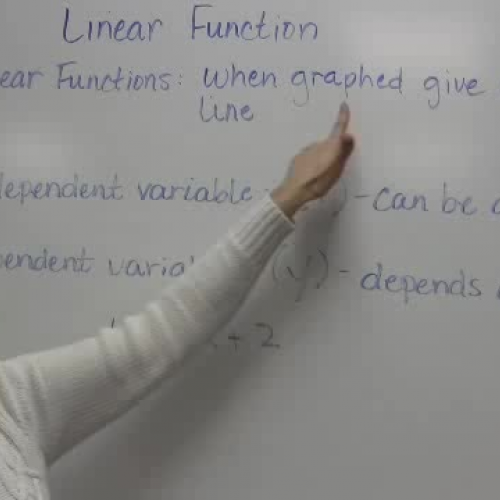 Linear Function
ear Functions: when graphed give
line
dependent variable ) - can be
pendent varia (y) - depends
+ 2